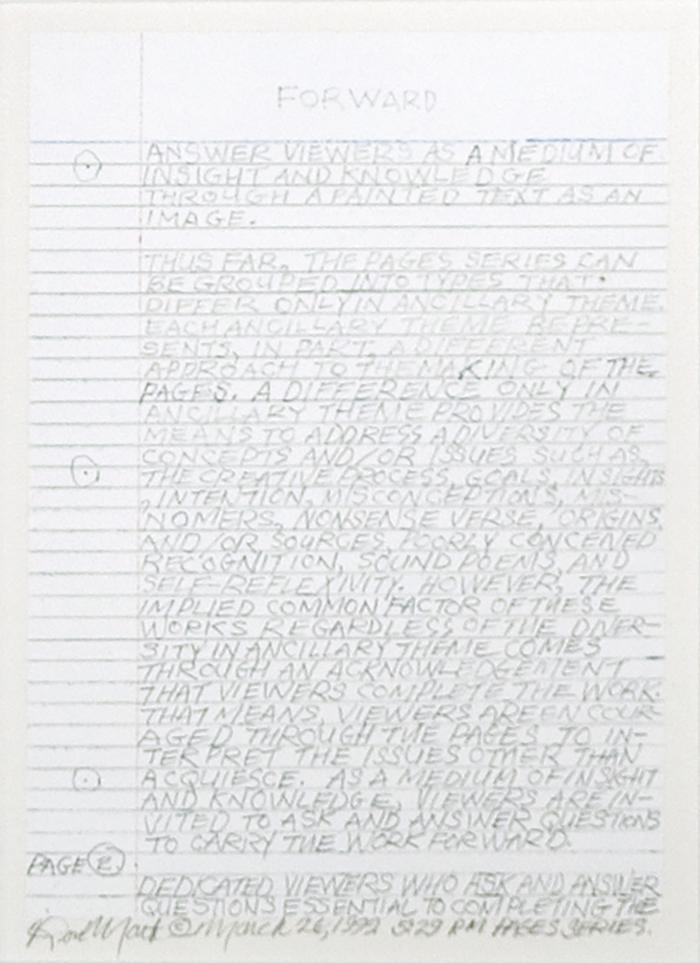 FORWARD
ANSWER VIEWERS AS A MEDIUM OF
INSIGHT AND KNOWLEDGE
THROUGH A PAINTED TEXT AS AN
IMAGE.
THUS FAR, THE PAGES SERIES CAN
BE GROUPED INTO TYPES THAT
DIFFER ONLY IN ANCILLARY THEME.
EACH ANCILLARY THEME REPRE-
SENTS, IN PART, A DIFFERENT
APPROACH TO THE MAKING OF THE
PAGES. A DIFFERENCE ONLY IN
ANCILLARY THEME PROVIDES THE
MEANS TO ADDRESS A DIVERSITY OF
CONCEPTS AND/OR ISSUES SUCH AS,
THE CREATIVE PROCESS, GOALS, INSIGHTS
, INTENTION, MISCONCEPTIONS, MIS-
NOMERS, NONSENSE VERSE, ORIGINS,
AND/OR SOURCES, POORLY CONCEIVED
RECOGNITION, SOUND POEMS, AND
SELF-REFLEXIVITY. HOWEVER, THE
IMPLIED COMMON FACTOR OF THESE
WORKS REGARDLESS OF THE DIVER-
SITY IN ANCILLARY THEME COMES
THROUGH AN ACKNOWLEDGEMENT
THAT VIEWERS COMPLETE THE WORK.
THAT MEANS, VIEWERS ARE EN COUR-
AGED THROUGH THE PAGES TO IN-
TERPRET THE ISSUES OTHER THAN
ACQUIESCE. AS A MEDIUM OF INSIGHT
AND KNOWLEDGE, VIEWERS ARE IN-
VITED TO ASK AND ANSWER QUESTIONS
TO CARRY THE WORK FORWARD.
PAGE 2
DEDICATED VIEWERS WHO ASK AND ANSWER
QUESTIONS ESSENTIAL TO COMPLETING THE
© March 26, 1992 5:29 PM PAGES SERIES.